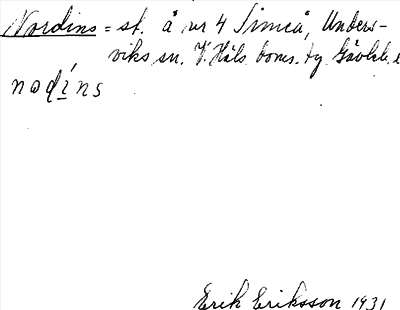 Nordins = st. å nr 4 Simeå, Unders-
viks sn. V. Häls. doms. tg Gävleb. l
nodíns
Erik Eriksson 1931